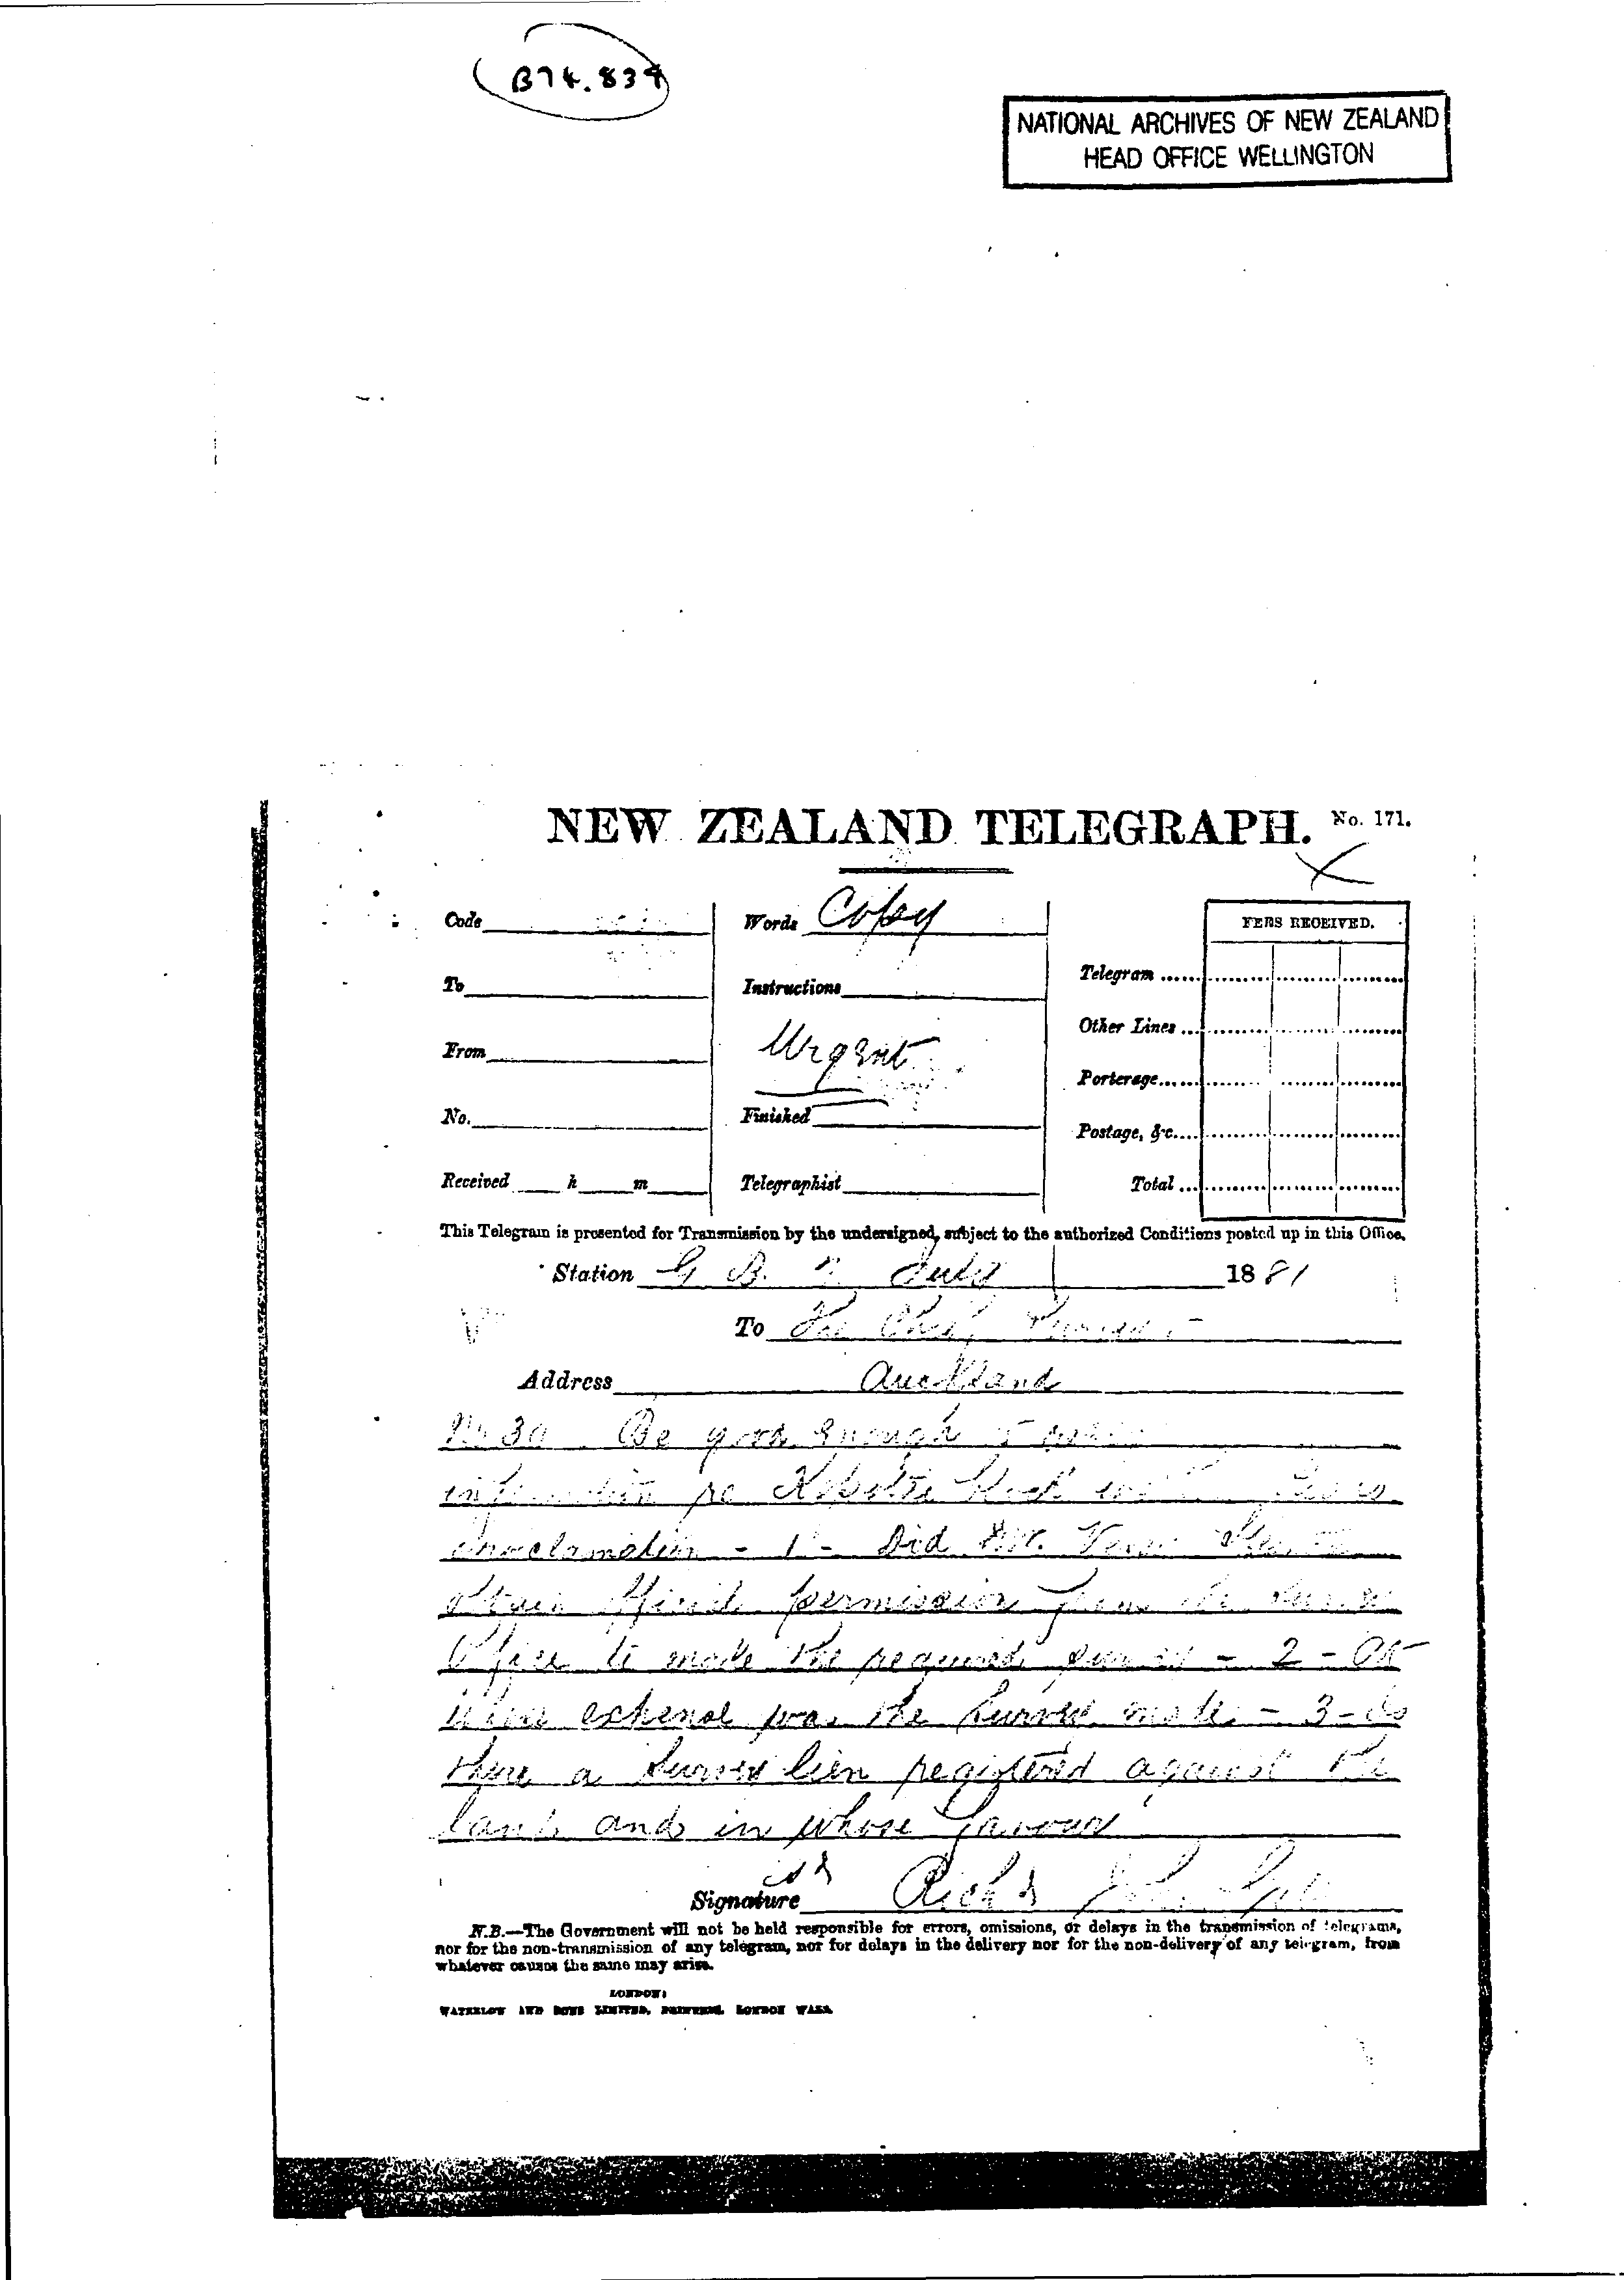 B74.834
NATIONAL ARCHIVES OF NEW ZEALAND
HEAD OFFICE WELLINGTON
NEW ZEALAND TELEGRAPH. No. 171.
Code Words Copy FEES RECEIVED.
To Instructions Telegram
Other Lines
From Urgent
Porterage
No. Finished
Postage, &c.
Received h m Telegraphist Total
This Telegram is presented for Transmission by the undersigned, subject to the authorized Conditions posted up in this Office.
Station G B. July 1881
To The Chief
Address Auckland
Be good enough
re Block
proclamation - 1 - Did
permission from the
Office to make the required survey - 2 - At
whose expense was the survey made - 3 - Is
there a survey lien registered against the
land and in whose favour
Signature Richd
N.B.—The Government will not be held responsible for errors, omissions, or delays in the transmission of telegrams,
nor for the non-transmission of any telegram, nor for delays in the delivery nor for the non-delivery of any telegram, from
whatever causes the same may arise.
LONDON:
WATERLOW AND SONS LIMITED, PRINTERS, LONDON WALL